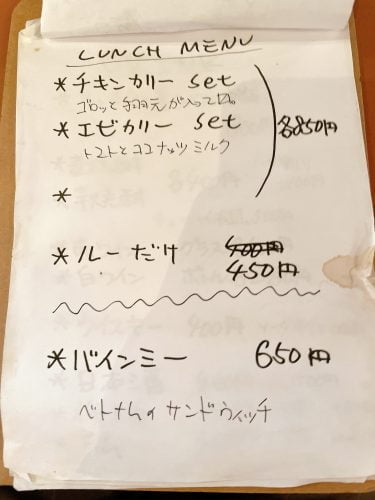 LUNCH MENU
*チキンカリー set
ゴロッと手羽元が入って
*エビカリー set
各850円
トマトとココナッツミルク
*
*ルーだけ 400円
450円
*バインミー 650円
ベトナムのサンドウィッチ